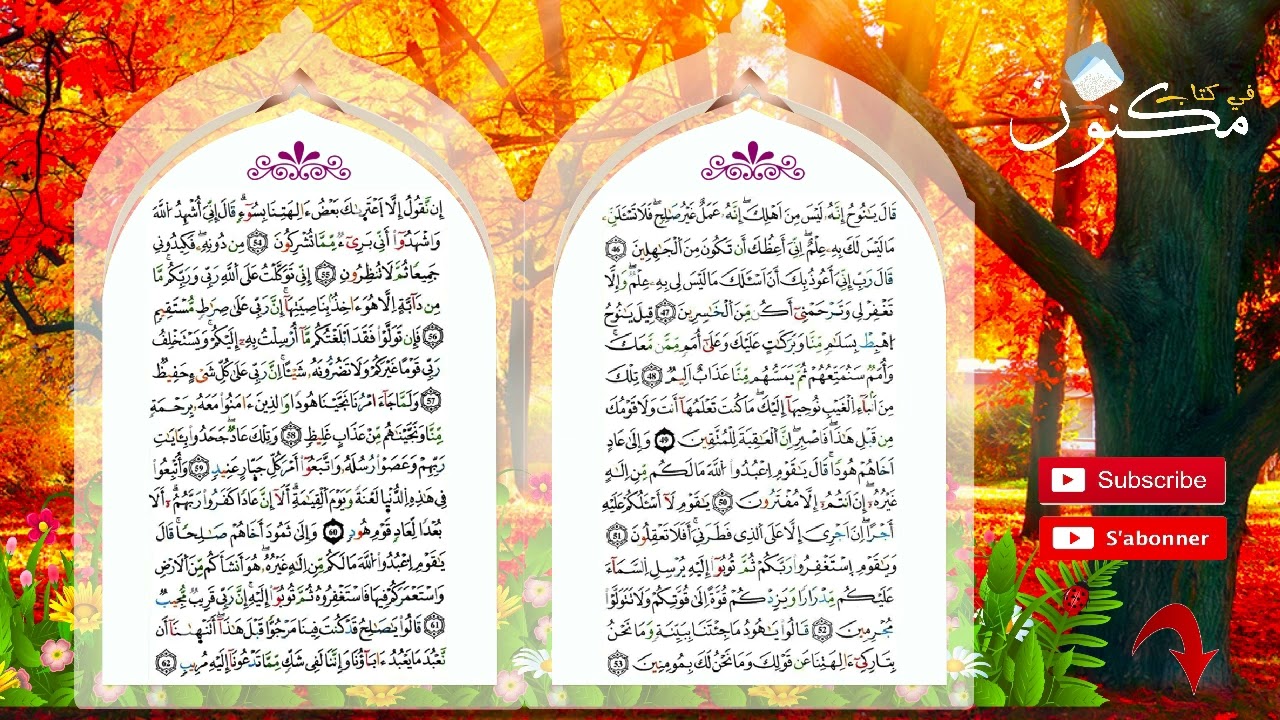 في كتاب
مكنون
قَالَ يَٰنُوحُ إِنَّهُۥ لَيْسَ مِنَ اَهْلِكَۖ إِنَّهُۥ عَمَلٌ غَيْرُ صَٰلِحٖۖ فَلَا تَسْـَٔلَنِّۦ
مَا لَيْسَ لَكَ بِهِۦ عِلْمٌۖ اِنِّيَ أَعِظُكَ أَن تَكُونَ مِنَ اَلْجَٰهِلِينَ 46
قَالَ رَبِّ إِنِّيَ أَعُوذُ بِكَ أَنَ اَسْـَٔلَكَ مَا لَيْسَ لِي بِهِۦ عِلْمٌۖ وَإِلَّا
تَغْفِرْ لِي وَتَرْحَمْنِيٓ أَكُن مِّنَ اَلْخَٰسِرِينَ 47 قِيلَ يَٰنُوحُ
اُهْبِطْ بِسَلَٰمٖ مِّنَّا وَبَرَكَٰتٍ عَلَيْكَ وَعَلَىٰٓ أُمَمٖ مِّمَّن مَّعَكَۖ
وَأُمَمٞ سَنُمَتِّعُهُمْ ثُمَّ يَمَسُّهُم مِّنَّا عَذَابٌ اَلِيمٞ 48 تِلْكَ
مِنَ اَنۢبَآءِ اِ۬لْغَيْبِ نُوحِيهَآ إِلَيْكَۖ مَا كُنتَ تَعْلَمُهَآ أَنتَ وَلَا قَوْمُكَ
مِن قَبْلِ هَٰذَاۖ فَاصْبِرِۖ اِنَّ اَ۬لْعَٰقِبَةَ لِلْمُتَّقِينَ 49 وَإِلَىٰ عَادٍ
اَخَاهُمْ هُودٗاۖ قَالَ يَٰقَوْمِ اِ۟عْبُدُواْ اُ۬للَّهَ مَا لَكُم مِّنِ اِلَٰهٍ
غَيْرُهُۥٓۖ إِنَ اَنتُمُۥٓ إِلَّا مُفْتَرُونَ 50 يَٰقَوْمِ لَآ أَسْـَٔلُكُمْ عَلَيْهِ
أَجْراًۖ اِنَ اَجْرِيَ إَلَّا عَلَى اَ۬لذِي فَطَرَنِيَۖ أَفَلَا تَعْقِلُونَ 51
وَيَٰقَوْمِ اِ۪سْتَغْفِرُواْ رَبَّكُمْ ثُمَّ تُوبُوٓاْ إِلَيْهِ يُرْسِلِ اِ۬لسَّمَآءَ
عَلَيْكُم مِّدْرَاراٗ وَيَزِدْكُمْ قُوَّةً اِلَىٰ قُوَّتِكُمْ وَلَا تَتَوَلَّوْاْ
مُجْرِمِينَ 52 قَالُواْ يَٰهُودُ مَا جِئْتَنَا بِبَيِّنَةٖ وَمَا نَحْنُ
بِتَارِكِيٓ ءَالِهَتِنَا عَن قَوْلِكَ وَمَا نَحْنُ لَكَ بِمُومِنِينَ 53
إِن نَّقُولُ إِلَّا اَ۪عْتَر۪ىٰكَ بَعْضُ ءَالِهَتِنَا بِسُوٓءٖۖ قَالَ إِنِّيَ أُشْهِدُ اُ۬للَّهَ
وَاشْهَدُوٓاْ أَنِّي بَرِيٓءٞ مِّمَّا تُشْرِكُونَ 54 مِن دُونِهِۦۖ فَكِيدُونِي
جَمِيعٗا ثُمَّ لَا تُنظِرُونِ 55 إِنِّي تَوَكَّلْتُ عَلَى اَ۬للَّهِ رَبِّي وَرَبِّكُمۖ مَّا
مِن دَآبَّةٍ اِلَّا هُوَ ءَاخِذُۢ بِنَاصِيَتِهَآۖ إِنَّ رَبِّي عَلَىٰ صِرَٰطٖ مُّسْتَقِيمٖ
56 فَإِن تَوَلَّوْاْ فَقَدَ اَبْلَغْتُكُم مَّآ أُرْسِلْتُ بِهِۦٓ إِلَيْكُمْۖ وَيَسْتَخْلِفُ
رَبِّي قَوْماً غَيْرَكُمْ وَلَا تَضُرُّونَهُۥ شَيْـٔاًۖ اِنَّ رَبِّي عَلَىٰ كُلِّ شَيْءٍ حَفِيظٞ
57 وَلَمَّا جَآءَ امْرُنَا نَجَّيْنَا هُودٗا وَالذِينَ ءَامَنُواْ مَعَهُۥ بِرَحْمَةٖ
مِّنَّا وَنَجَّيْنَٰهُم مِّنْ عَذَابٍ غَلِيظٖ 58 وَتِلْكَ عَادٞۖ جَحَدُواْ بِـَٔايَٰتِ
رَبِّهِمْ وَعَصَوْاْ رُسُلَهُۥ وَاتَّبَعُوٓاْ أَمْرَ كُلِّ جَبَّارٍ عَنِيدٖ 59 وَأُتْبِعُواْ
فِي هَٰذِهِ اِ۬لدُّنْيَا لَعْنَةٗ وَيَوْمَ اَ۬لْقِيَٰمَةِۖ أَلَآ إِنَّ عَاداٗ كَفَرُواْ رَبَّهُمُۥٓۖ أَلَا
بُعْداٗ لِّعَادٖ قَوْمِ هُودٖ 60 وَإِلَىٰ ثَمُودَ أَخَاهُمْ صَٰلِحاٗۖ قَالَ
يَٰقَوْمِ اِ۟عْبُدُواْ اُ۬للَّهَ مَا لَكُم مِّنِ اِلَٰهٍ غَيْرُهُۥۖ هُوَ أَنشَأَكُم مِّنَ اَ۬لَارْضِ
وَاسْتَعْمَرَكُمْ فِيهَا فَاسْتَغْفِرُوهُ ثُمَّ تُوبُوٓاْ إِلَيْهِۖ إِنَّ رَبِّي قَرِيبٞ مُّجِيبٞ
61 قَالُواْ يَٰصَٰلِحُ قَدْ كُنتَ فِينَا مَرْجُوّاٗ قَبْلَ هَٰذَآۖ أَتَنْهَيٰنَآ أَن
نَّعْبُدَ مَا يَعْبُدُ ءَابَآؤُنَا وَإِنَّنَا لَفِي شَكّٖ مِّمَّا تَدْعُونَآ إِلَيْهِ مُرِيبٖ 62
Subscribe
S'abonner